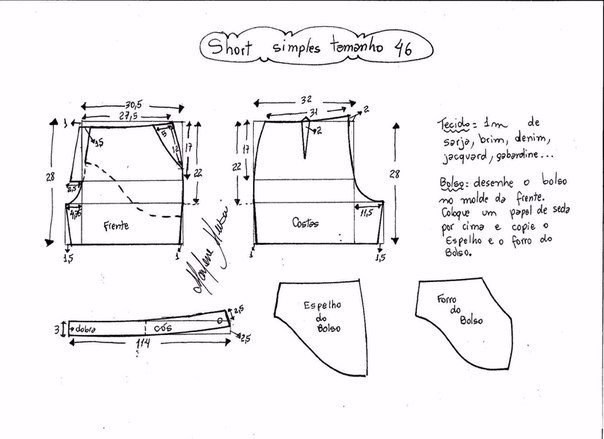 Short simples tamanho 46
30,5
27,5
1
3,5
5
12
17
22
28
2,5
4,5
Frente
1,5
1
32
31
2
2
17
22
28
11,5
Costas
1
1,5
Tecido: 1m de
sarja, brim, denim,
jacquard, gabardine...
Bolso: desenhe o bolso
no molde da frente.
Coloque um papel de seda
por cima e copie o
Espelho e o forro do
Bolso.
3
dobra
cós
2,5
2,5
114
Espelho
do
Bolso
Forro
do
Bolso